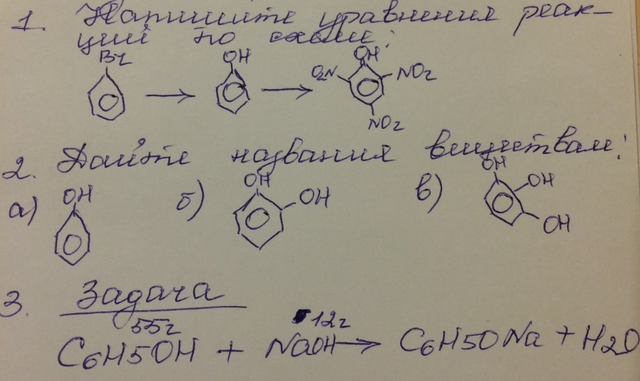 1. Напишите уравнения реак-
ций по схеме:
Br OH OH
O2N NO2
NO2
2. Дайте названия веществам:
а) OH б) OH OH в) OH OH OH
3. Задача
55г 12г
C6H5OH + NaOH → C6H5ONa + H2O